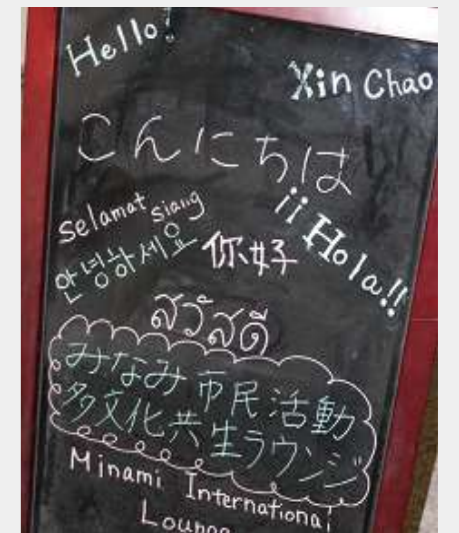 Hello!
Xin Chao
こんにちは
selamat siang
¡¡Hola!!
안녕하세요
你好
สวัสดี
みなみ市民活動
多文化共生ラウンジ
Minami International
Lounge